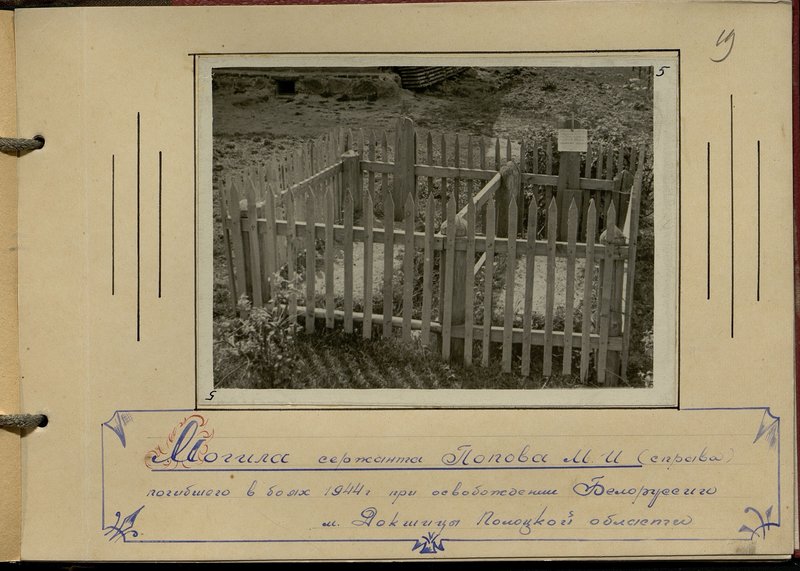 19
5
5
Могила сержанта Попова М.И (справа)
погибшего в боях 1944 г при освобождении Белоруссии
м. Докшицы Полоцкой области